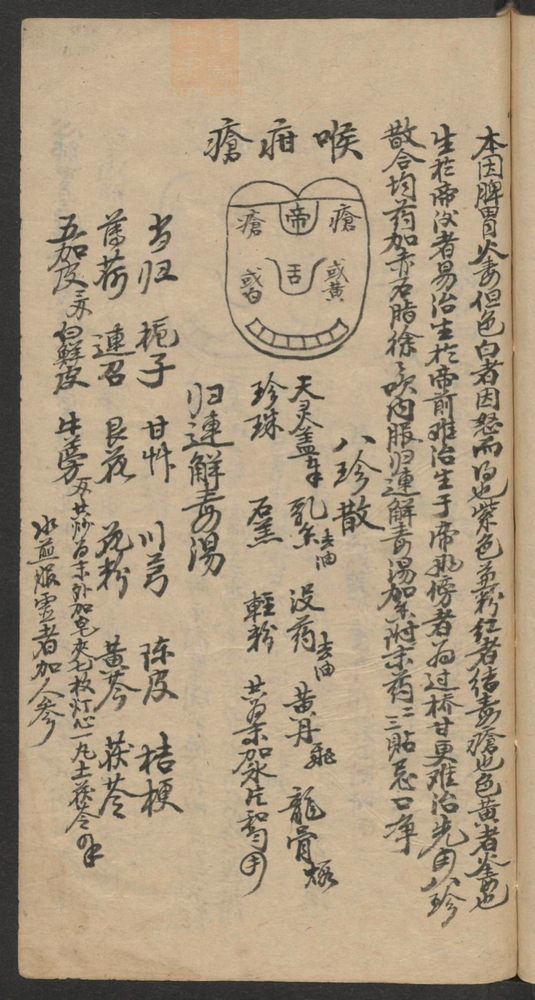 本因脾胃火毒但色白者因怒而得也紫色並粉紅者結毒瘡也色黄者火毒也
生於帝後者易治生於帝前难治生于帝两傍者为过桥甘更难治先用八珍
散合均药加赤石脂徐徐吹内服归連解毒湯加附末药二三貼忌口净
喉疳瘡
瘡 帝 瘡
或白 舌 或黄
八珍散
天灵盖 乳香去油 没药去油 黄丹飛 龍骨煅
珍珠 石羔 輕粉 共为末加氷片和匀用
归連解毒湯
当归 梔子 甘草 川芎 陈皮 桔梗
薄荷 連召 艮花 花粉 黄芩 茯苓
五加皮 白鮮皮 牛蒡 共炒为末外加皂夾七枚灯心一丸土茯苓
水煎服虚者加人参